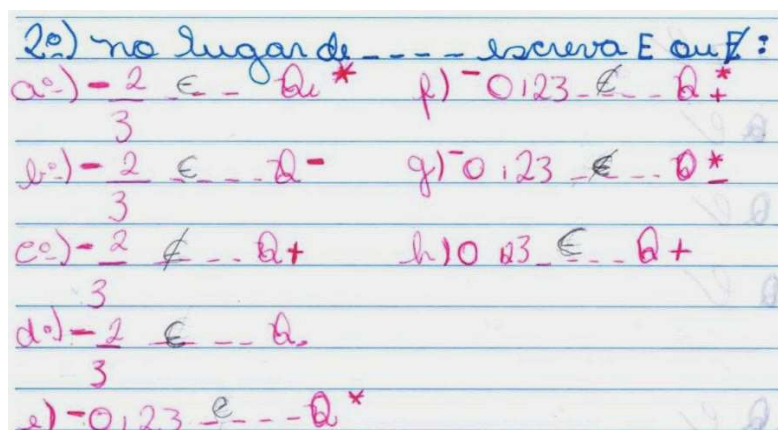 2º) no lugar de ---- escreva E ou ∉:
aº) -2/3 ∈ -- Q *
f) -0,23 -∉-- Q*+
bº) -2/3 ∈ --- Q-
g) -0,23 -∉-- Q*-
cº) -2/3 ∉ -- Q+
h) 0,23 -∈--- Q+
dº) -2/3 ∈ -- Q
e) -0,23 -∈---- Q*